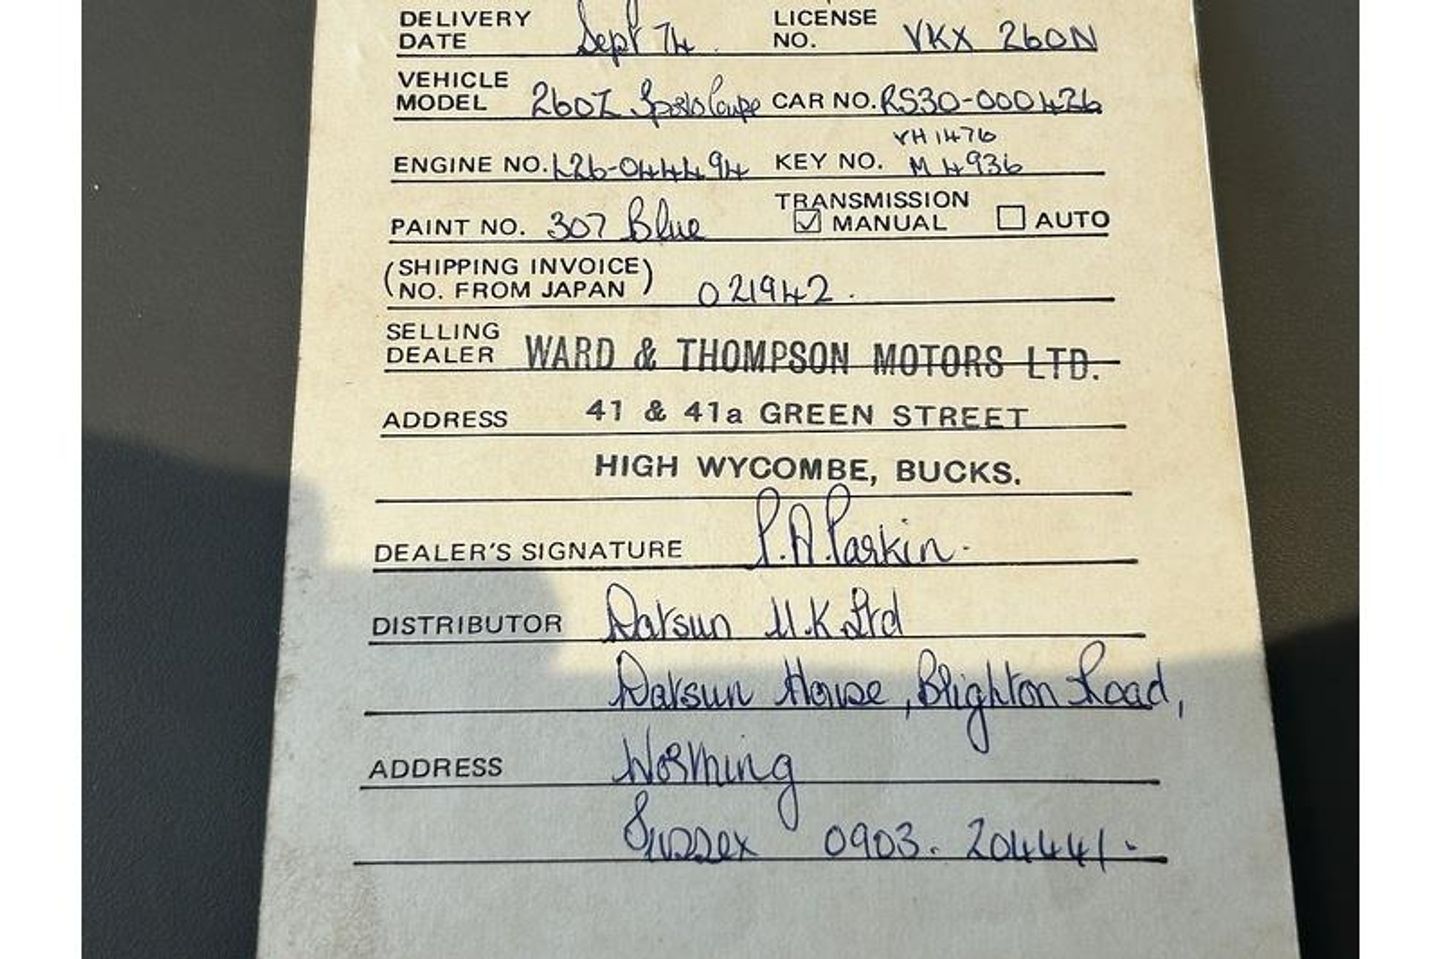 DELIVERY DATE Sept 74. LICENSE NO. VKX 260N
VEHICLE MODEL 260Z Sports Coupe CAR NO. RS30-000426
VH 1476
ENGINE NO. L26-044494 KEY NO. M 4936
PAINT NO. 307 Blue TRANSMISSION ☑ MANUAL ☐ AUTO
(SHIPPING INVOICE NO. FROM JAPAN) 021942.
SELLING DEALER WARD & THOMPSON MOTORS LTD.
ADDRESS 41 & 41a GREEN STREET
HIGH WYCOMBE, BUCKS.
DEALER'S SIGNATURE P.A.Parkin.
DISTRIBUTOR Datsun U.K Ltd
Datsun House, Brighton Road,
ADDRESS Worthing
Sussex 0903. 204441.